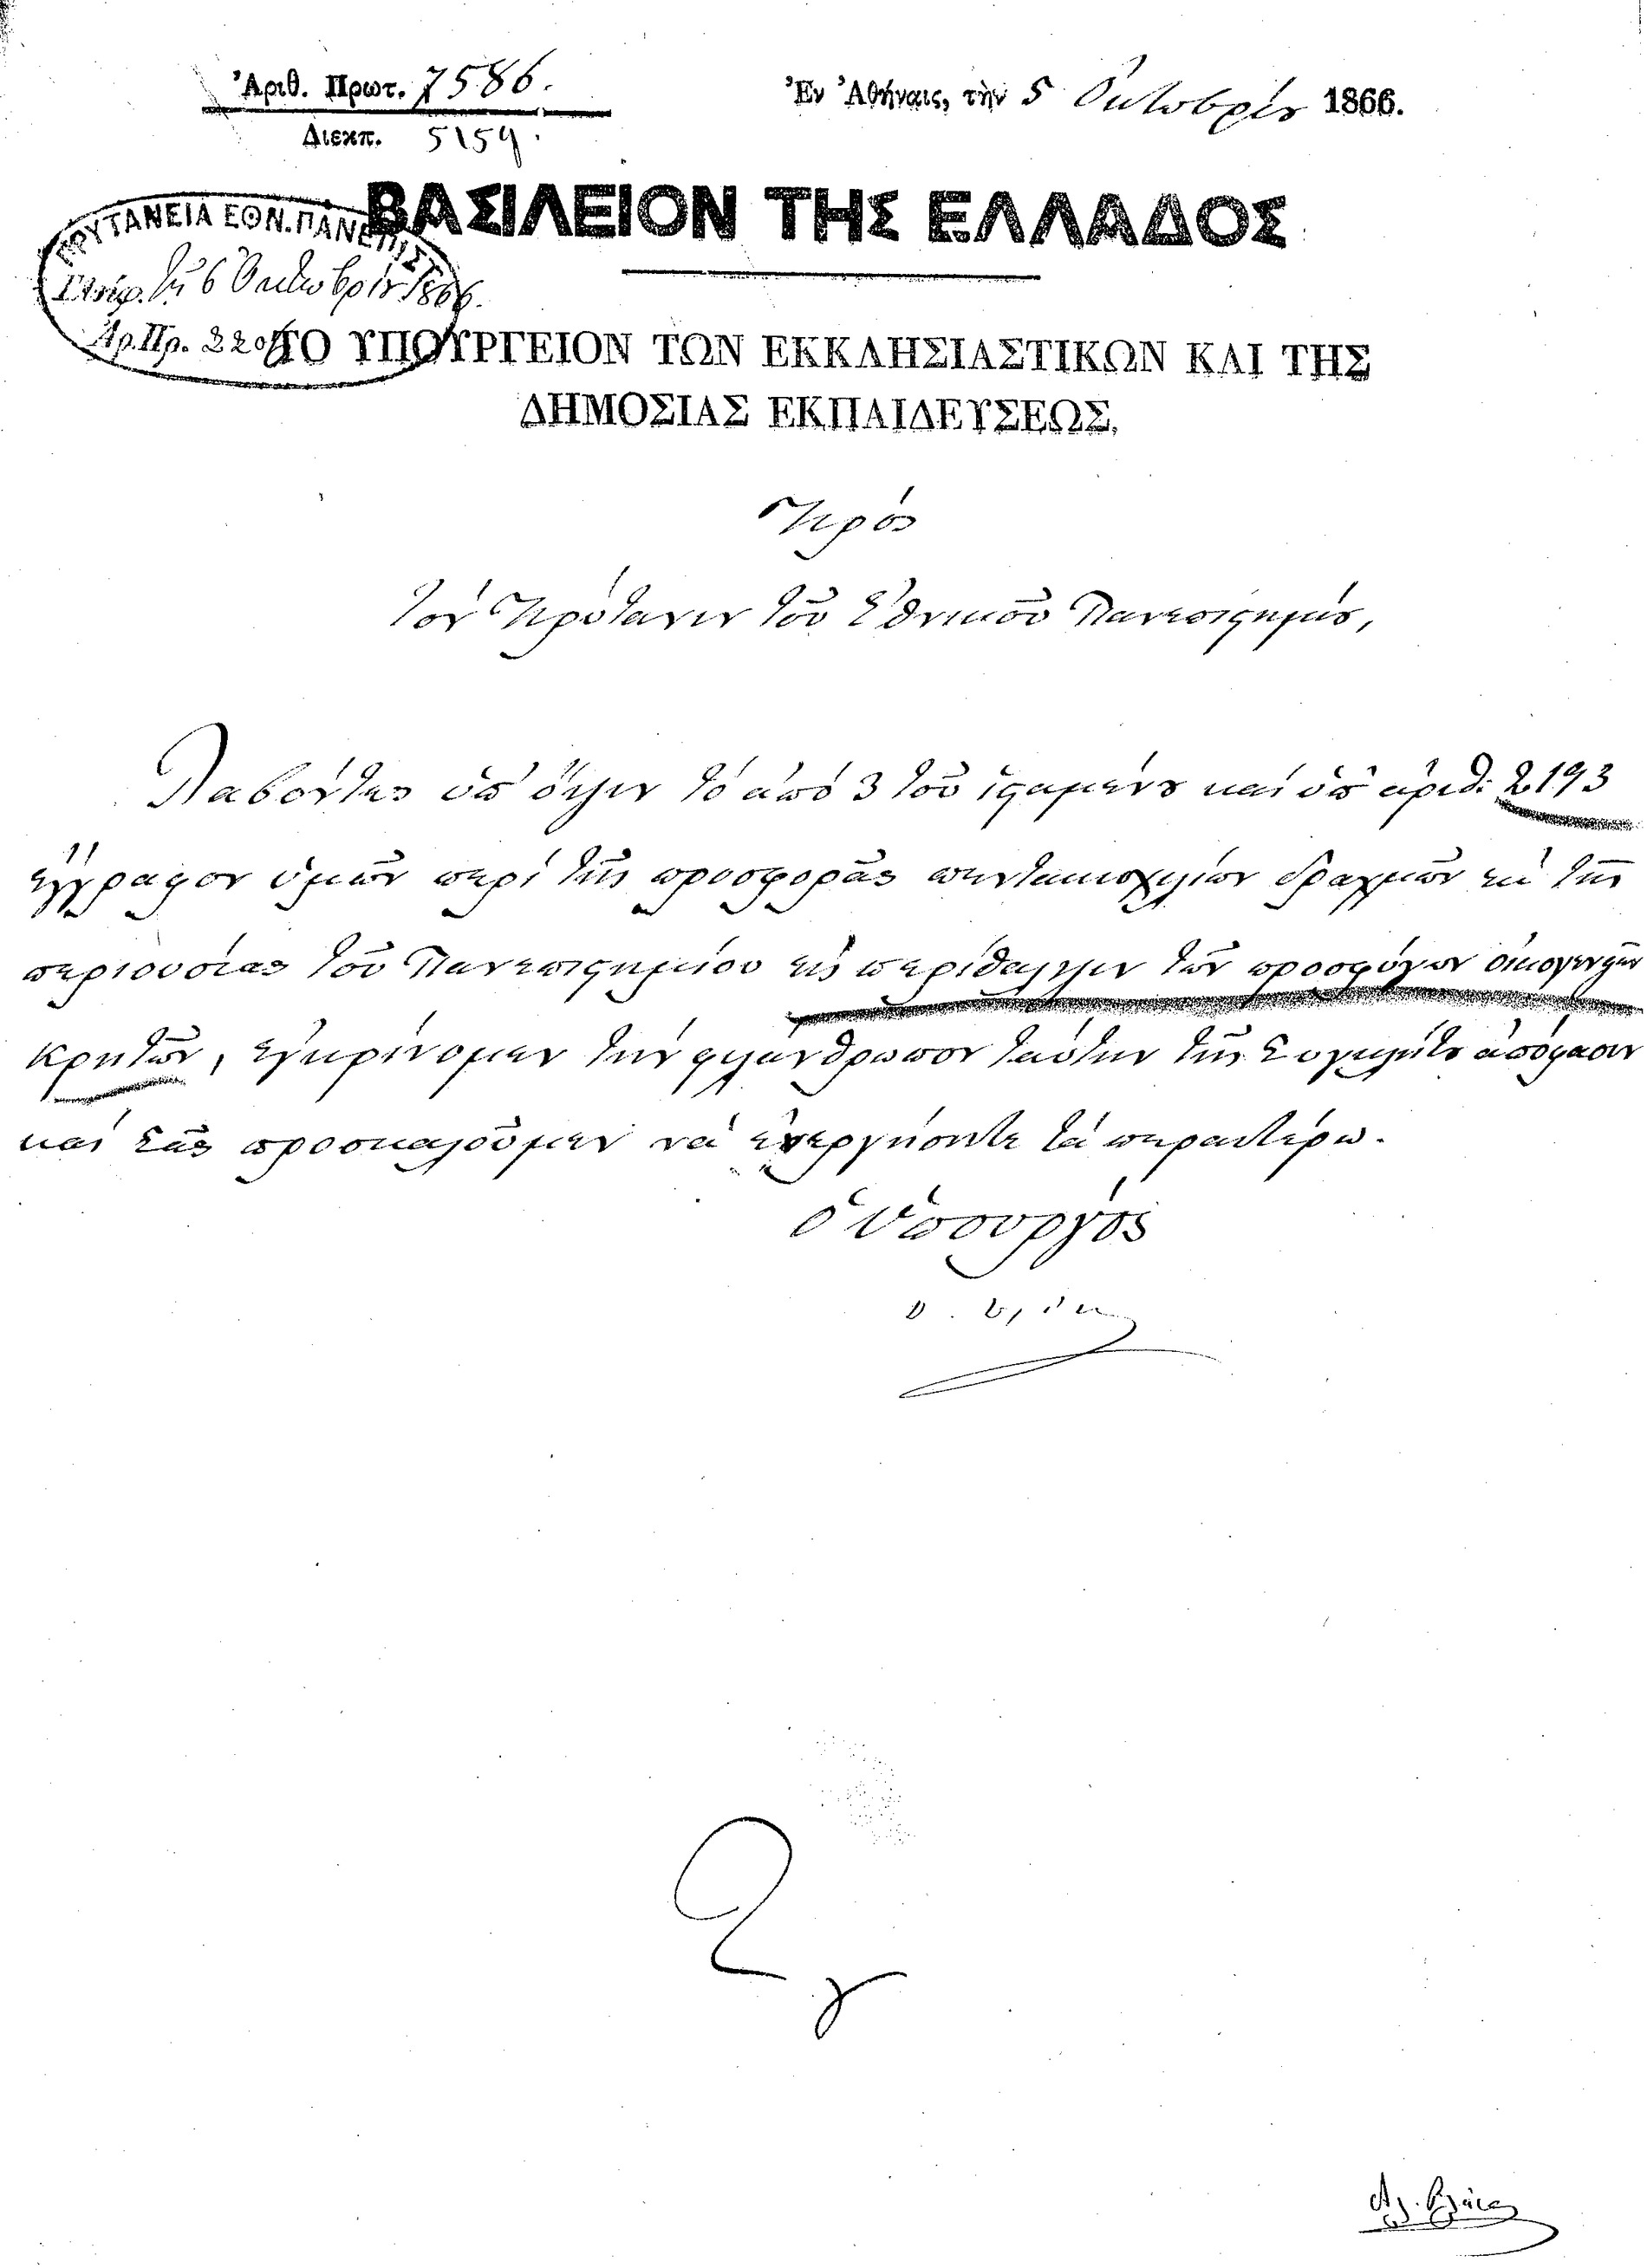 Ἀριθ. Πρωτ. 7586.
Διεκπ. 5159.
Ἐν Ἀθήναις, τὴν 5 Ὀκτωβρίου 1866.
ΒΑΣΙΛΕΙΟΝ ΤΗΣ ΕΛΛΑΔΟΣ
ΠΡΥΤΑΝΕΙΑ ΕΘΝ. ΠΑΝΕΠΙΣΤ
τῇ 6 Ὀκτωβρίου 1866.
Ἀρ. Πρ.
ΤΟ ΥΠΟΥΡΓΕΙΟΝ ΤΩΝ ΕΚΚΛΗΣΙΑΣΤΙΚΩΝ ΚΑΙ ΤΗΣ
ΔΗΜΟΣΙΑΣ ΕΚΠΑΙΔΕΥΣΕΩΣ,
Πρὸς
τὸν Πρύτανιν τοῦ Ἐθνικοῦ Πανεπιστημίου,
Λαβόντες ὑπ' ὄψιν τὸ ἀπὸ 3 τοῦ ἱσταμένου καὶ ὑπ' ἀριθ: 2193
ἔγγραφον ὑμῶν περὶ τῆς προσφορᾶς πεντακισχιλίων δραχμῶν ἐκ τῆς
περιουσίας τοῦ Πανεπιστημίου εἰς περίθαλψιν τῶν προσφύγων οἰκογενειῶν
Κρητῶν, ἐγκρίνομεν τὴν φιλάνθρωπον ταύτην τῆς Συγκλήτου ἀπόφασιν
καὶ Σᾶς προσκαλοῦμεν νὰ ἐνεργήσητε τὰ περαιτέρω.
ὁ Ὑπουργὸς